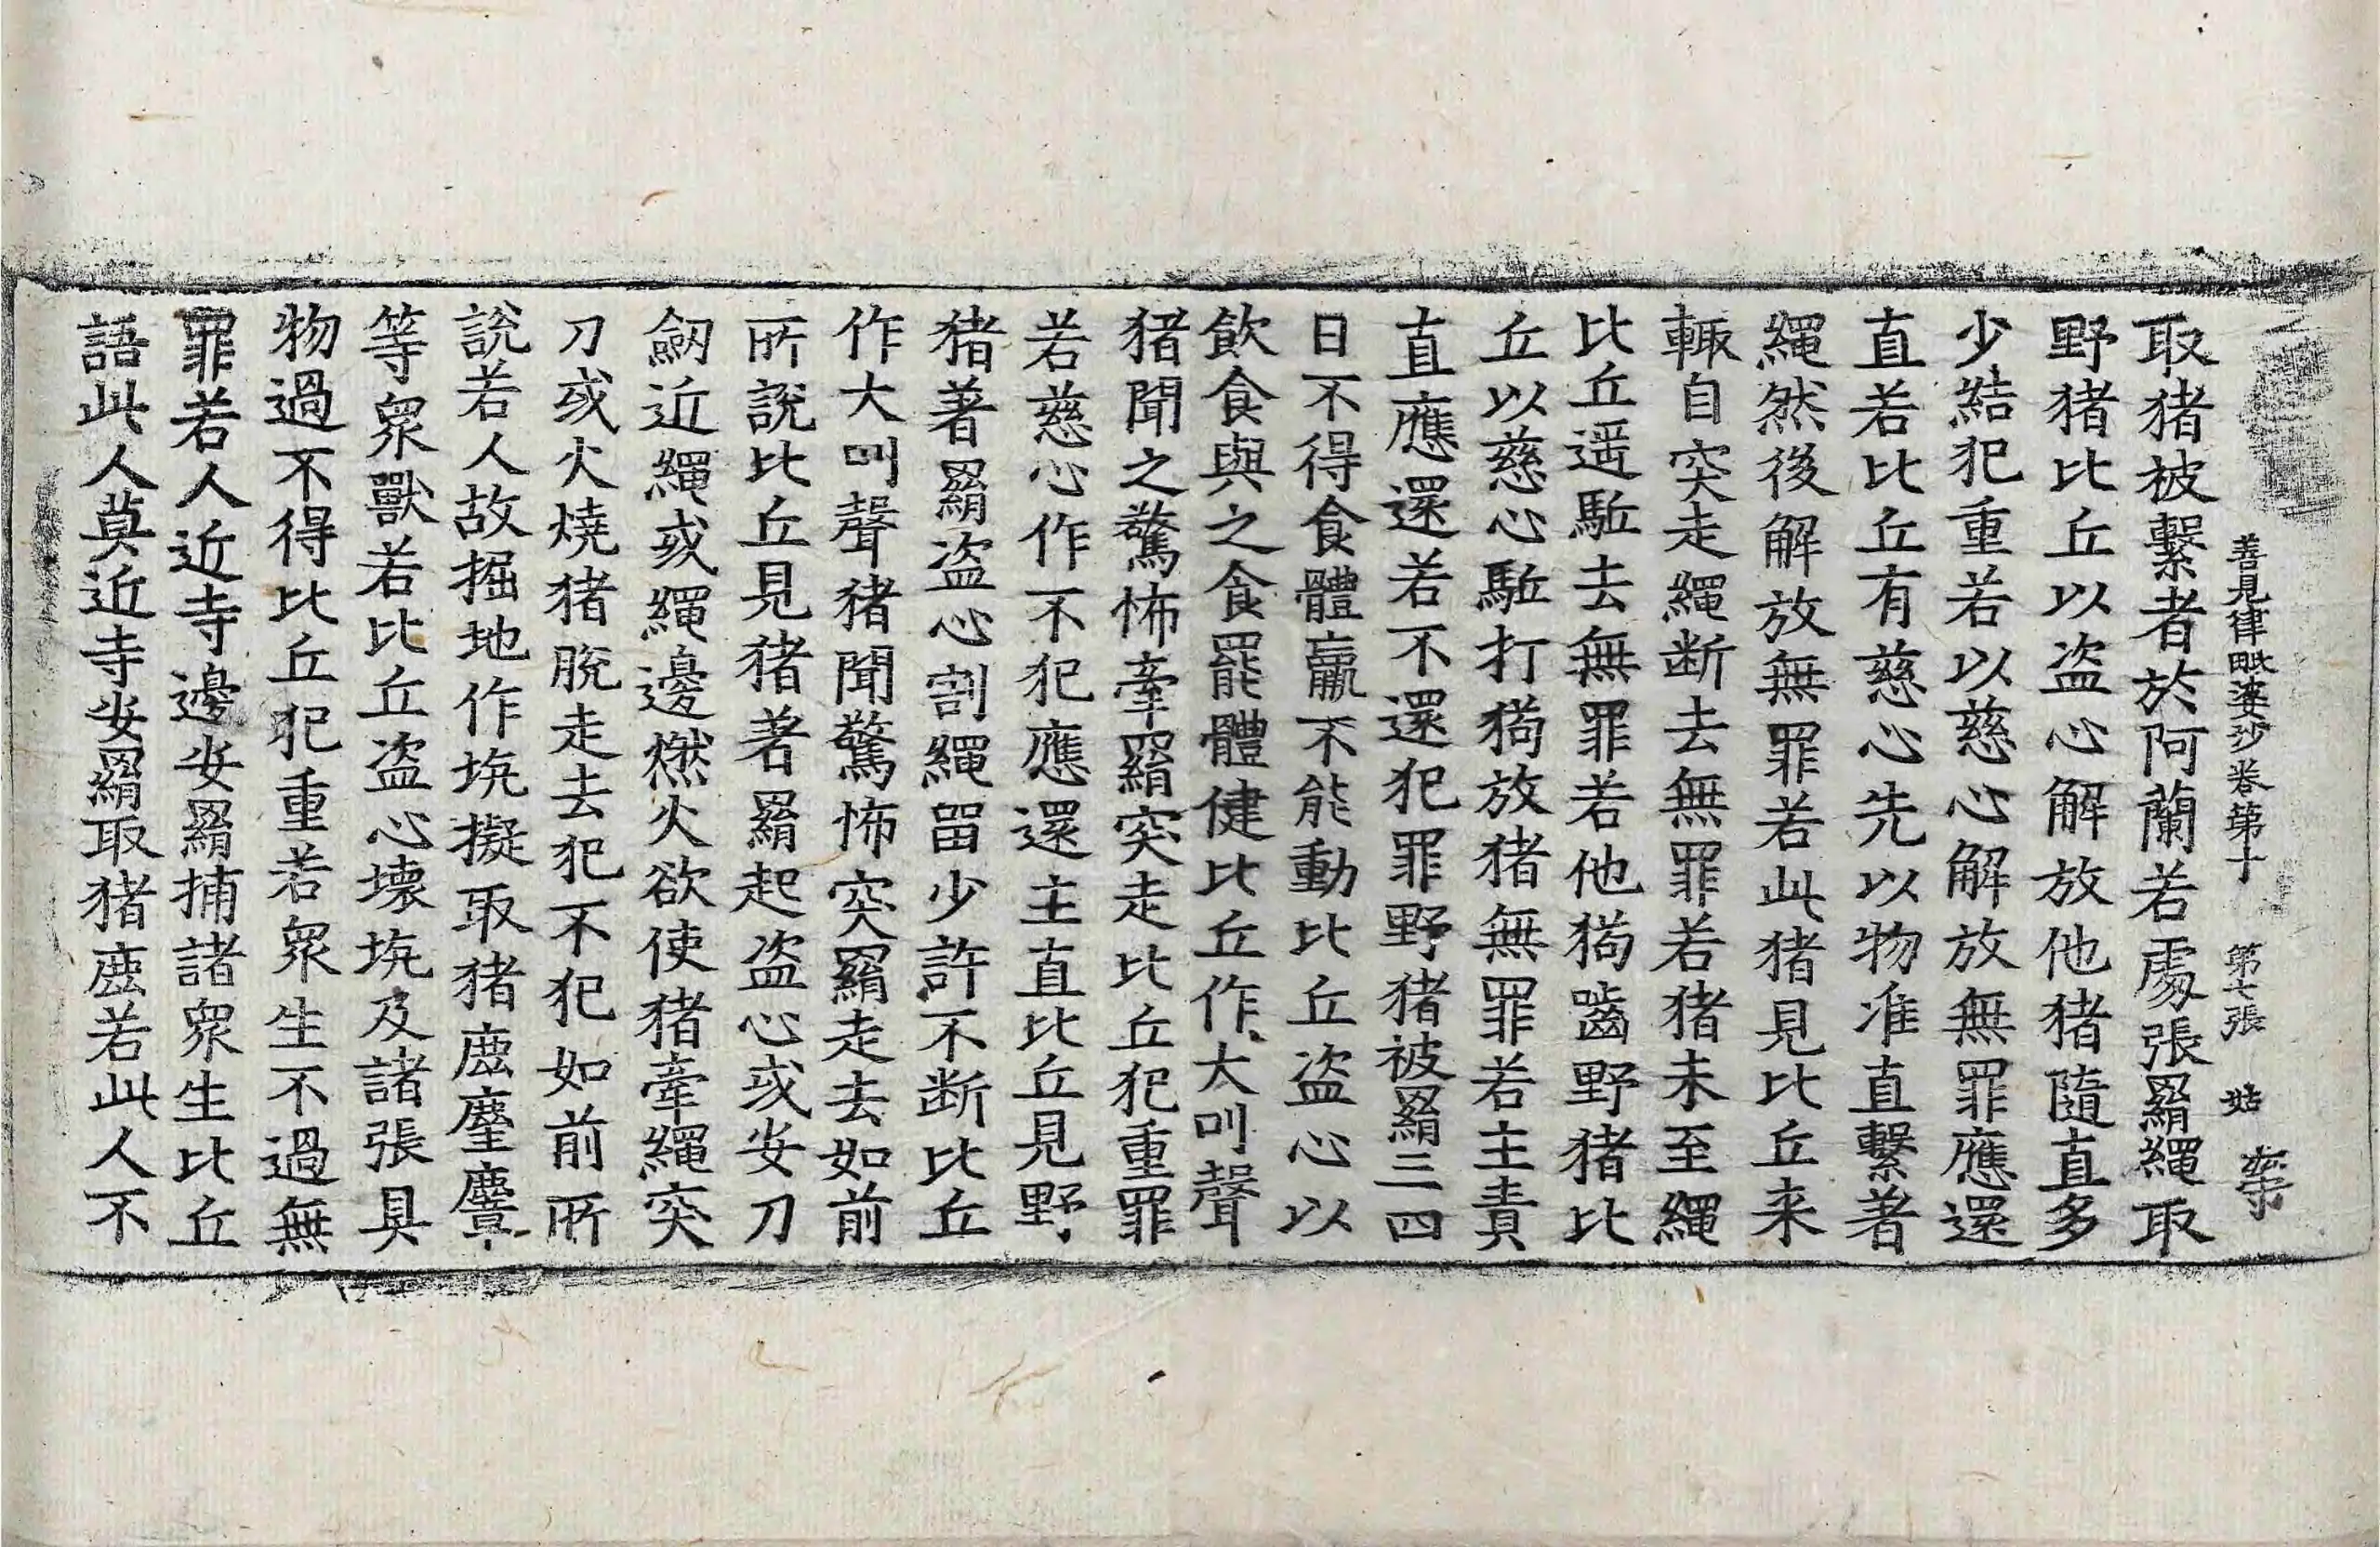 善見律毗婆沙卷第十 第七張 姑
取猪被繫者於阿蘭若處張羂繩取
野猪比丘以盗心解放他猪隨直多
少結犯重若以慈心解放無罪應還
直若比丘有慈心先以物准直繫著
繩然後解放無罪若此猪見比丘来
輙自突走繩断去無罪若猪未至繩
比丘遥駈去無罪若他猗嚙野猪比
丘以慈心駈打猗放猪無罪若主責
直應還若不還犯罪野猪被羂三四
日不得食體羸不能動比丘盗心以
飲食與之食罷體健比丘作大叫聲
猪聞之驚怖牽羂突走比丘犯重罪
若慈心作不犯應還主直比丘見野
猪著羂盗心割繩留少許不断比丘
作大叫聲猪聞驚怖突羂走去如前
所說比丘見猪著羂起盗心或安刀
劒近繩或繩邊燃火欲使猪牽繩突
刀或火燒猪脫走去犯不犯如前所
說若人故掘地作坑擬取猪鹿麈麞
等衆獸若比丘盗心壞坑及諸張具
物過不得比丘犯重若衆生不過無
罪若人近寺邊安羂捕諸衆生比丘
語此人莫近寺安羂取猪鹿若此人不